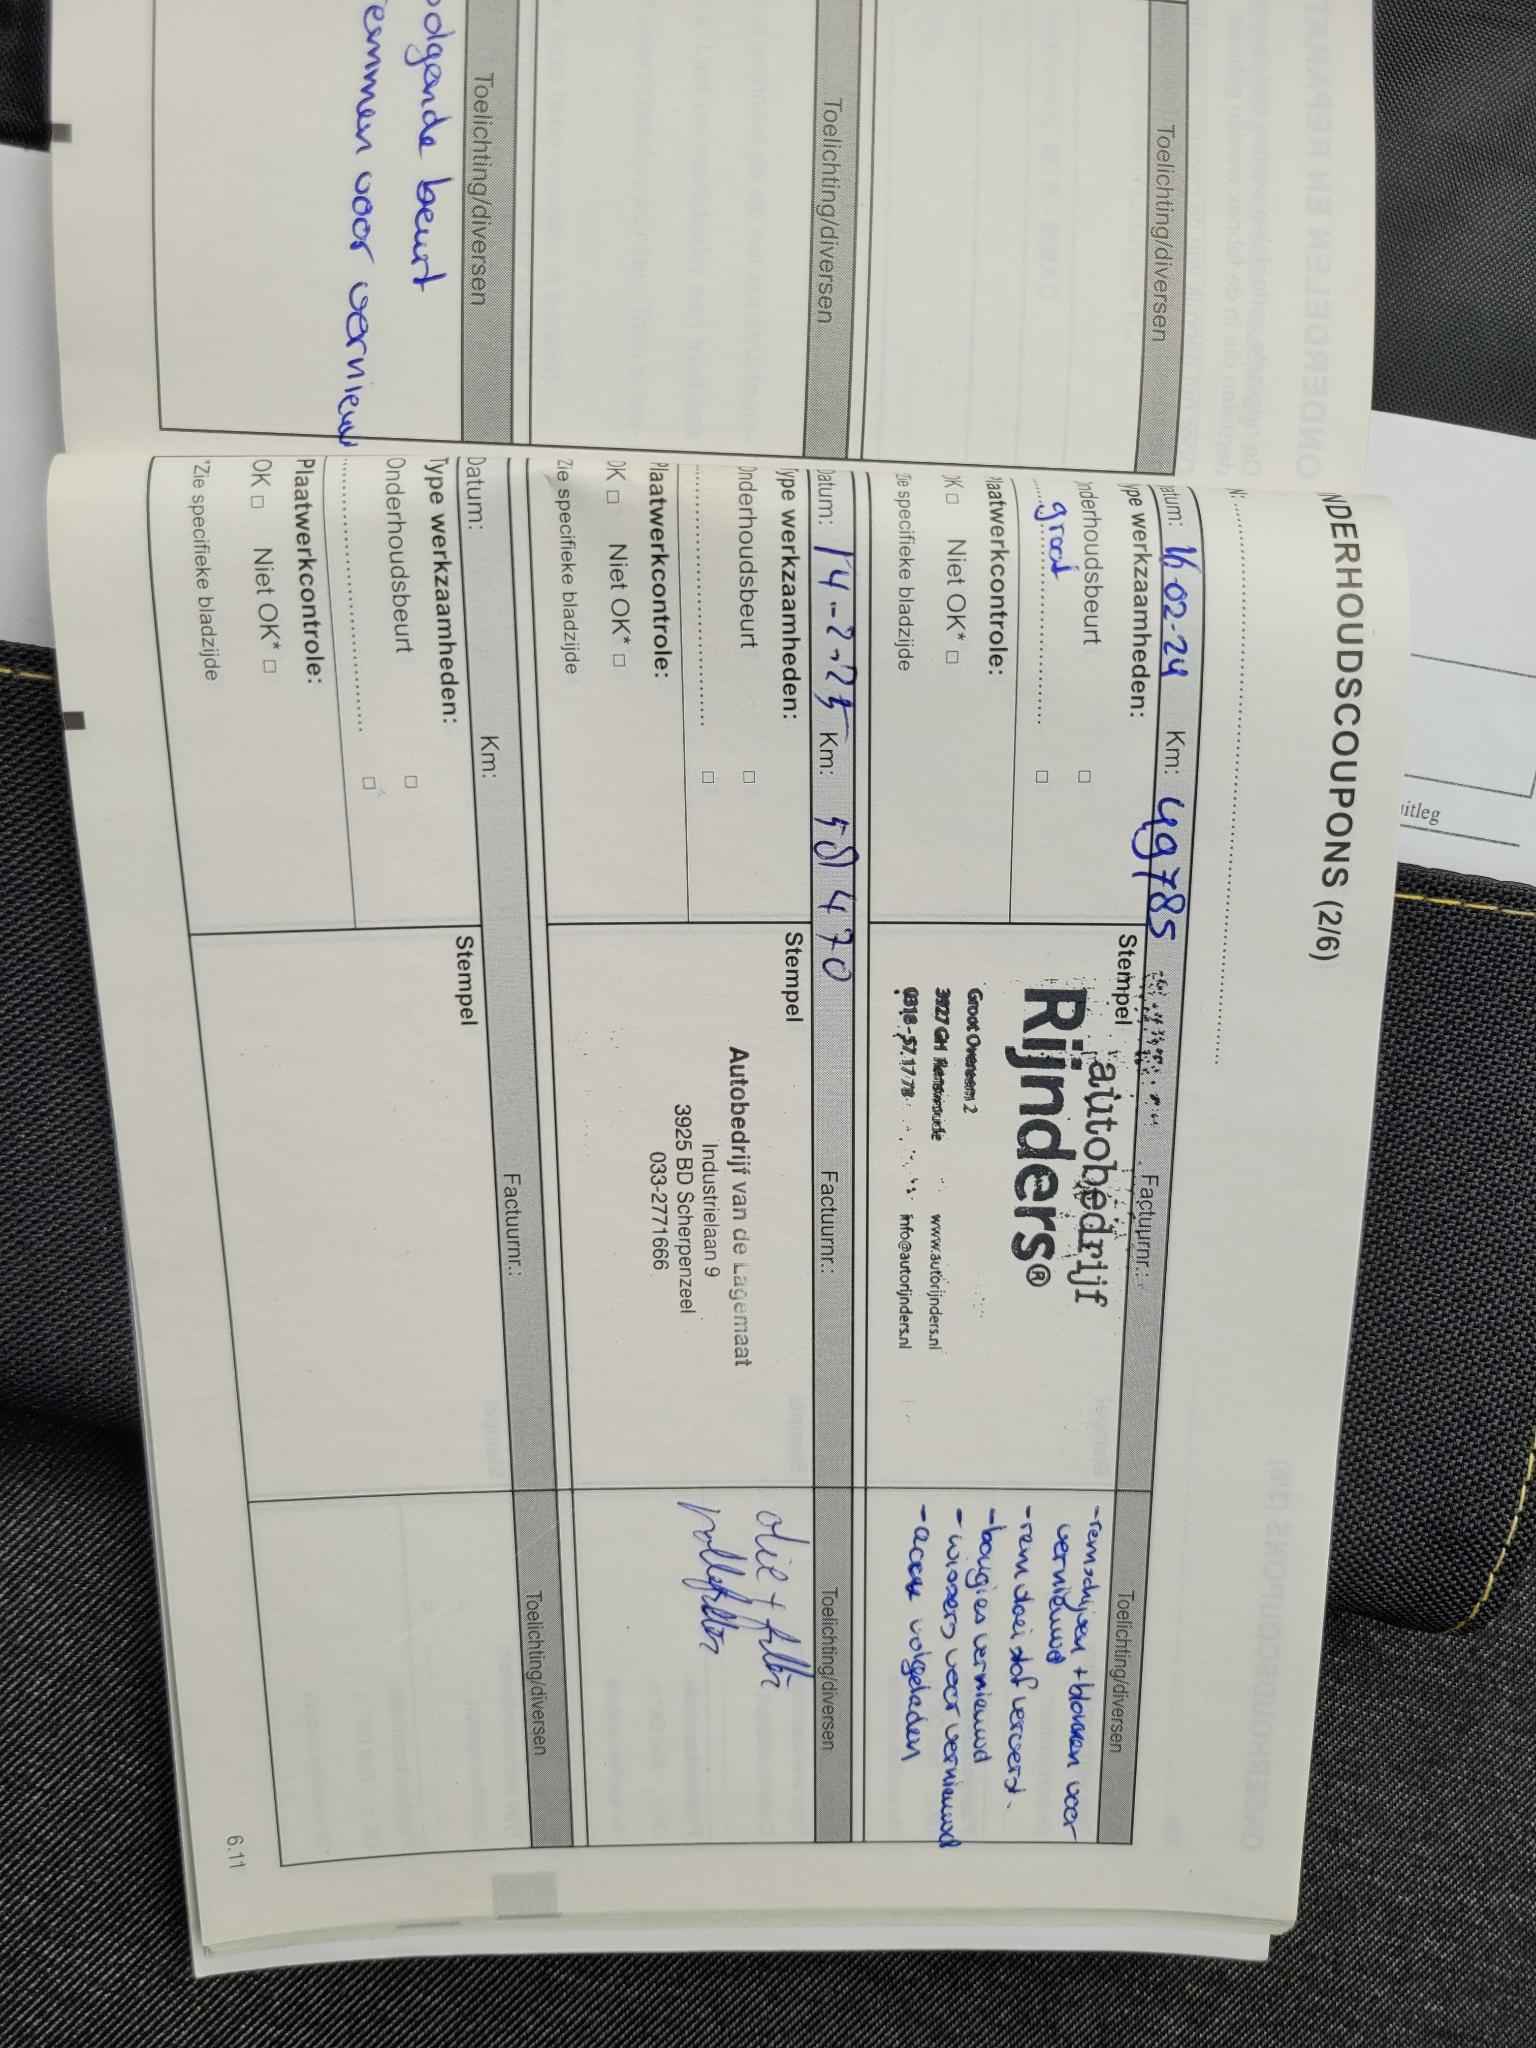 Toelichting/diversen
Toelichting/diversen
Toelichting/diversen
olgende beurt
emmen voor vernieuw
NDERHOUDSCOUPONS (2/6)
N: ........................................
atum: 16-02-24 Km: 49785 Factuurnr.: Toelichting/diversen
ype werkzaamheden:
nderhoudsbeurt □
groot ........................ □
laatwerkcontrole:
OK □ Niet OK* □
ie specifieke bladzijde
Stempel
autobedrijf
Rijnders®
Groot Overeem 2
3927 GH Renswoude www.autorijnders.nl
0318-57.17.78 info@autorijnders.nl
- remschijven + blokken voor
vernieuwd
- remvloeistof ververst.
- bougies vernieuwd
- wissers voor vernieuwd
- accu volgeladen
Datum: 14-2-25 Km: 58470 Factuurnr.: Toelichting/diversen
ype werkzaamheden:
Onderhoudsbeurt □
................................ □
laatwerkcontrole:
OK □ Niet OK* □
Zie specifieke bladzijde
Stempel
Autobedrijf van de Lagemaat
Industrielaan 9
3925 BD Scherpenzeel
033-2771666
olie + filter
pollenfilter
Datum: Km: Factuurnr.: Toelichting/diversen
Type werkzaamheden:
Onderhoudsbeurt □
................................ □
Plaatwerkcontrole:
OK □ Niet OK* □
*Zie specifieke bladzijde
Stempel
6.11
uitleg